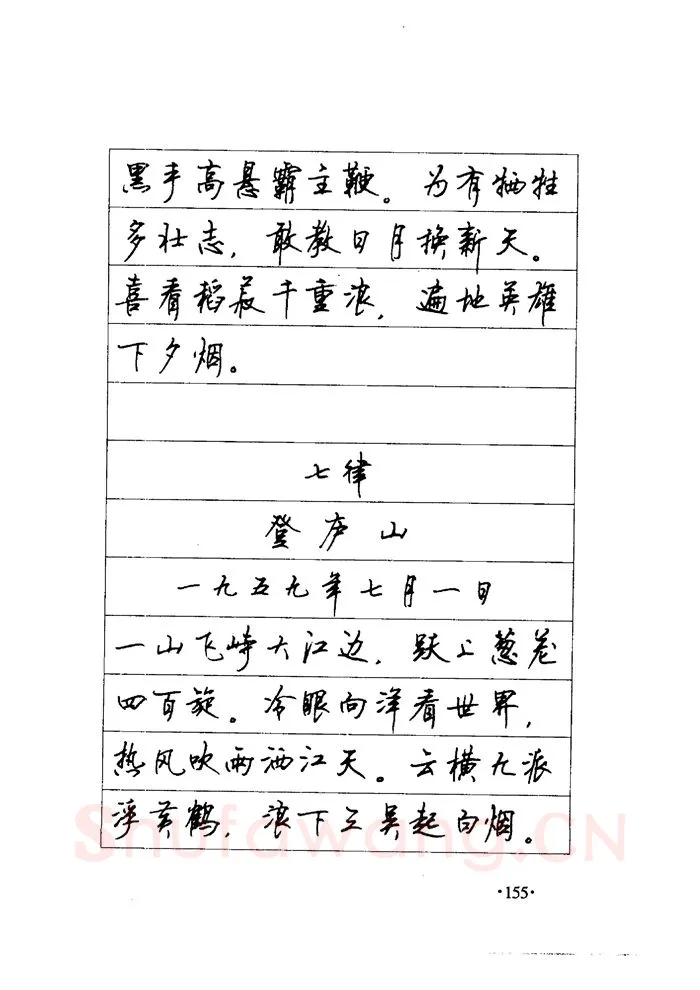 黑手高悬霸主鞭。为有牺牲
多壮志，敢教日月换新天。
喜看稻菽千重浪，遍地英雄
下夕烟。
七律
登庐山
一九五九年七月一日
一山飞峙大江边，跃上葱茏
四百旋。冷眼向洋看世界，
热风吹雨洒江天。云横九派
浮黄鹤，浪下三吴起白烟。
Shufawang.CN
·155·